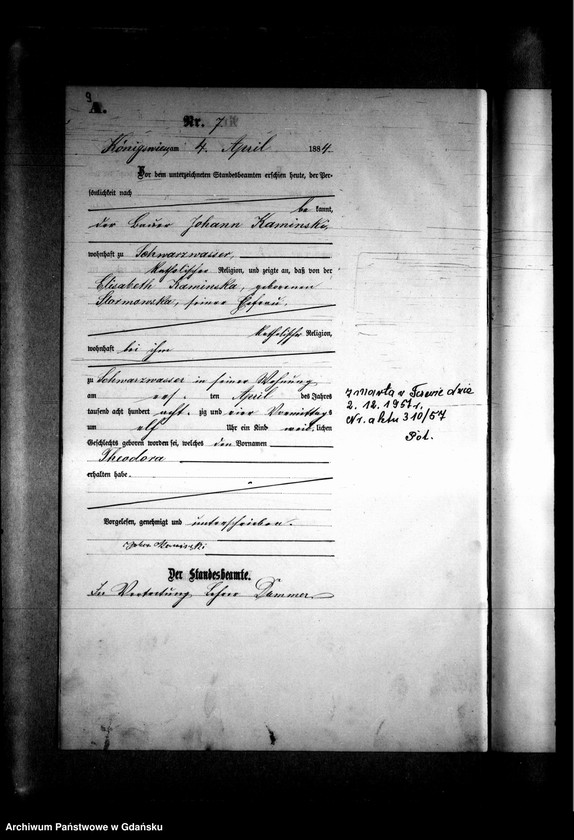 9
A.
Nr. 7
Königswiese, am 4. April 1884.
Vor dem unterzeichneten Standesbeamten erschien heute, der Per-
sönlichkeit nach
be kannt,
der Bauer Johann Kaminski,
wohnhaft zu Schwarzwasser,
katholischer Religion, und zeigte an, daß von der
Elisabeth Kaminska, geborenen
seiner Ehefrau,
katholischer Religion,
wohnhaft bei ihm
zu Schwarzwasser in seiner Wohnung
am ten April des Jahres
tausend acht hundert acht zig und vier Vormittags
um elf Uhr ein Kind weib lichen
Geschlechts geboren worden sei, welches den Vornamen
Theodora
erhalten habe.
Vorgelesen, genehmigt und unterschrieben.
Der Standesbeamte.
In Vertretung Lehrer Dammer
zmarła w Tczewie dnia
2. 12. 1957 r.
Nr. aktu 310/57
Archiwum Państwowe w Gdańsku